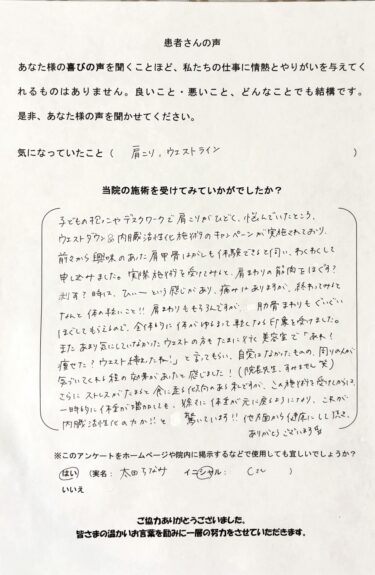 患者さんの声
あなた様の喜びの声を聞くことほど、私たちの仕事に情熱とやりがいを与えてく
れるものはありません。良いこと・悪いこと、どんなことでも結構です。
是非、あなた様の声を聞かせてください。
気になっていたこと（ 肩こり、ウエストライン ）
当院の施術を受けてみていかがでしたか？
子どもの抱っこやデスクワークで肩こりがひどく、悩んでいたところ、
ウエストダウン&内臓活性化施術のキャンペーンが実施されており、
前々から興味のあった肩甲骨はがしも体験できると伺い、わくわくして
申し込みました。実際施術を受けてみると、肩まわりの筋肉をほぐす？
剥す？時は、ひぃーという感じがあり、痛みはありますが、終わってみると
なんと体の軽いこと!! 肩まわりももちろんですが、肋骨まわりもぐいぐい
ほぐしてもらえるので、全体的に体がゆるまって軽くなる印象を受けました。
またあまり気にしていなかったウエストの方もたまに行く美容室で「あれ！
痩せた？ウエスト細くなったね！」と言ってもらい、自覚はなかったものの、周りの人が
気づいてくれる程の効果があったと感じました！（院長先生、すみません 笑）
さらに、ストレスがたまると食に走る傾向のある私ですが、この施術を受けてからは、
一時的に体重が増加しても、徐々に体重が元に戻るようになり、これが
内臓活性化の力か!!と驚いています!! 他方面から健康にして頂き、
ありがとうございます
※このアンケートをホームページや院内に掲示するなどで使用しても宜しいでしょうか？
はい （実名： 太田 イニシャル： ）
いいえ
ご協力ありがとうございました。
皆さまの温かいお言葉を励みに一層の努力をさせていただきます。